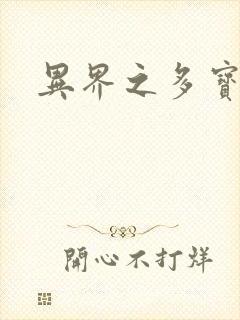 異界之多寶
開心不打烊